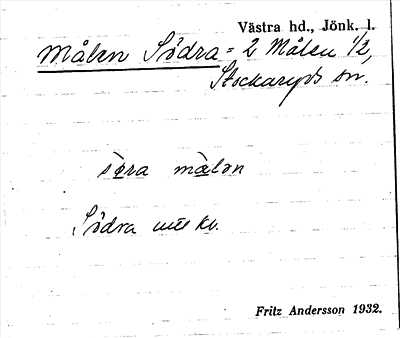 Västra hd., Jönk. l.
Målen Södra = 2 Målen 1/2,
Stockaryds sn.
sö̀ra mà̊lən
Södra
Fritz Andersson 1932.